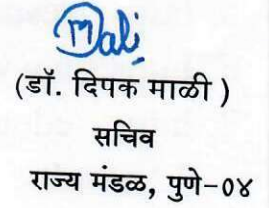 (डॉ. दिपक माळी )
सचिव
राज्य मंडळ, पुणे-०४